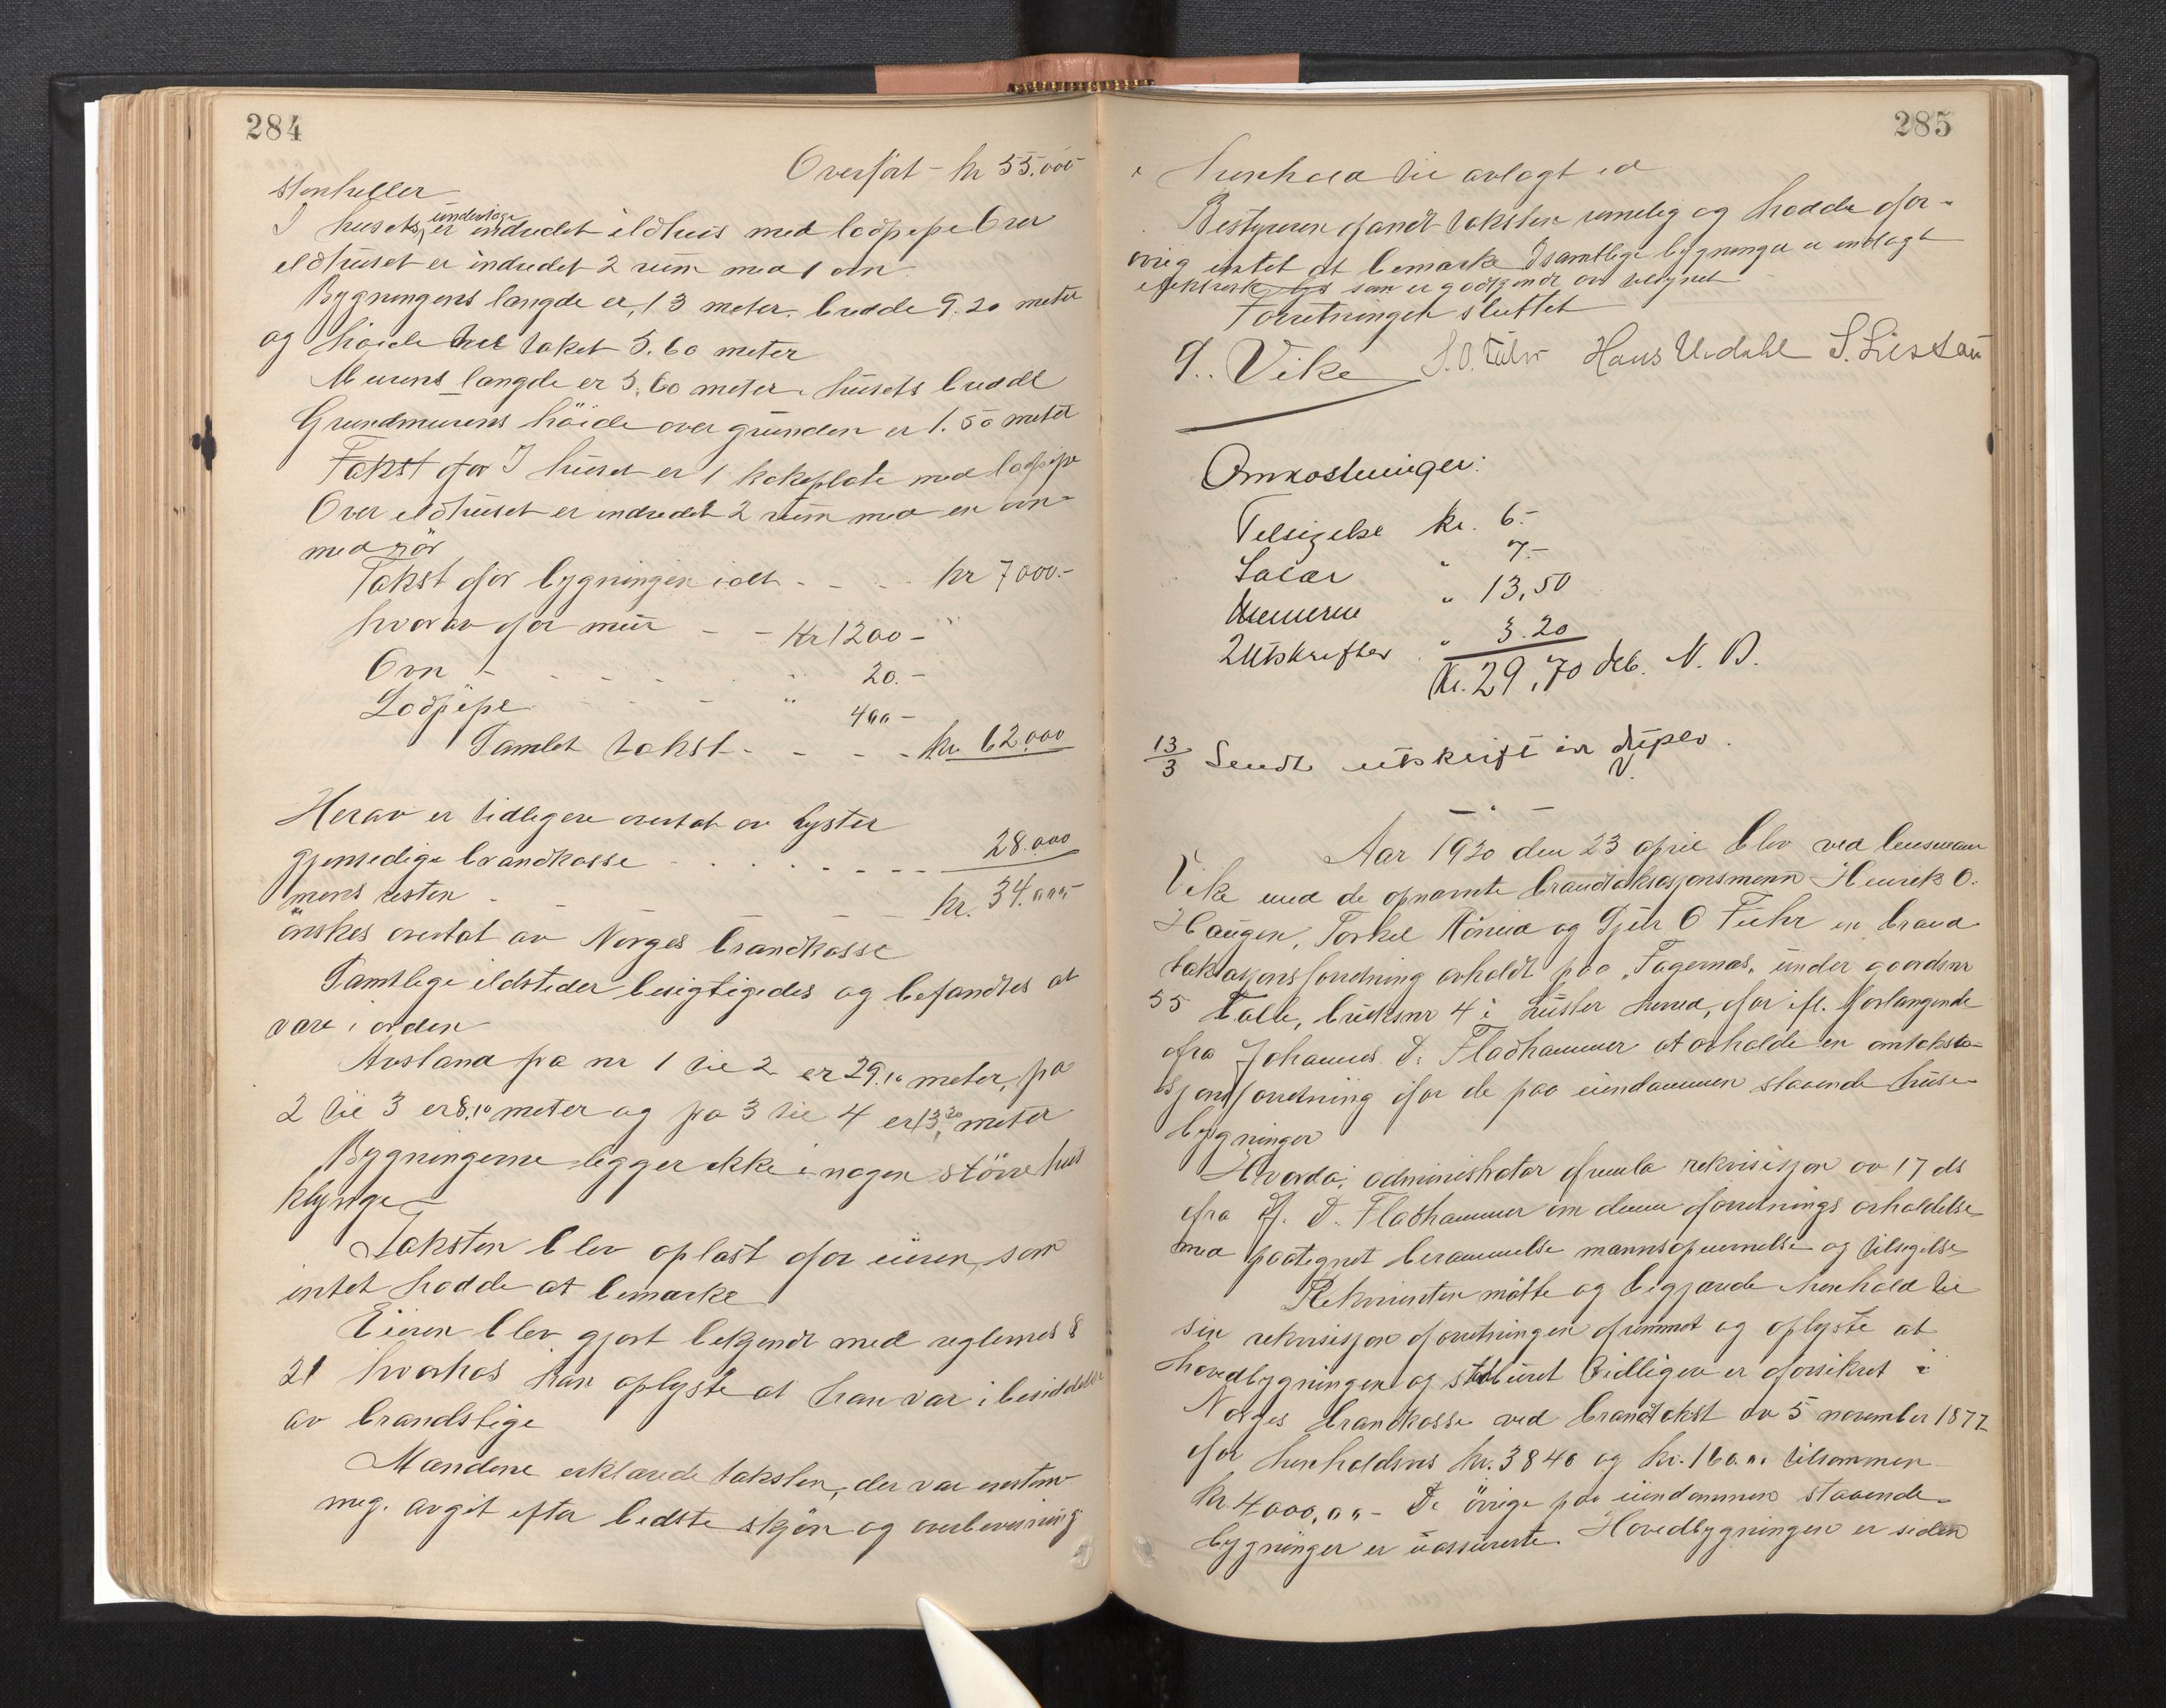 284
Overført - kr 55.000
stenheller
I husets underetage er indredet ildhus med lodpipe Over
eldhuset er indredet 2 rum med 1 ovn.
Bygningens længde er 13 meter. bredde 9.20 meter
og høide til taket 5.60 meter
Murens længde er 5.60 meter. husets bredde
Grundmurens høide over grunden er 1.50 meter
Takst for I huset er 1 kokeplate med lodpipe
Over eldhuset er indredet 2 rum med en ovn
med rör
Takst for bygningen ialt - - - kr 7000.-
hvorav for mur - - Kr 1200 -
Ovn - - - - - " 20.-
Lodpipe - - - " 400 -
Samlet takst - - - - kr. 62.000
Herav er tidligere overtat av Lyster
gjensidige brandkasse - - - - - 28.000
mens resten - - - - kr. 34.000
ønskes overtat av Norges brandkasse
Samtlige ildsteder besigtigedes og befandtes at
være i orden
Avstand fra nr 1 til 2 er 29.10 meter, fra
2 til 3 er 8.10 meter og fra 3 til 4 er 13,20 meter
Bygningerne ligger ikke i nogen större hus
klynge
Taksten blev oplæst for eieren, som
intet hadde at bemærke
Eieren blev gjort bekjendt med reglernes §
21 hvorhos han oplyste at han var i besiddelse
av brandstige
Mændene erklærede taksten, der var enstem-
mig. avgit efter bedste skjøn og overbevisning
285
i henhold til avlagt ed
Bestyreren fandt taksten rimelig og hadde for-
øvrig intet at bemærke I samtlige bygninger er indlagt
elektrisk lys som er godkjendt av tilsynet
Forretningen sluttet
J. Vike Hans Urdahl
Omkostninger:
Tilsigelse kr. 6.-
Salær " 7.-
Mænnerne " 13,50
2 Utskrifter " 3.20
Kr. 29,70 deb. N. B.
13/3 Sendt utskrift in duplo.
Aar 1920 den 23 april blev ved lensmann
Vike med de opnævnte brandtaksasjonsmenn Henrik O.
Haugen, Torkel og O Fuhr en brand
taksasjonsforretning avholdt paa "Fagernæs" under gaardsnr
55 bruksnr 4 i Luster herred, for ifl. forlangende
fra Johannes D. Fladhammer at avholde en omtaksa-
sjonsforretning for de paa eiendommen staaende huse-
bygninger
Hvorda; administrator fremla rekvisisjon av 17 ds
fra J. D. Fladhammer om denne forretnings avholdelse
med paategnet berammelse mannsopnevnelse og tilsigelse
Rekvirenten møtte og begjærede i henhold til
sin rekvisisjon forretningen fremmet og oplyste at
hovedbygningen og stabburet tidligere er forsikret i
Norges brandkasse ved brandtakst av 5 november 1877
for henholdsvis kr. 3840 og kr. 160.00 tilsammen
kr. 4000,00 - De øvrige paa eiendommen staaende
bygninger er uassurerte. Hovedbygningen er siden